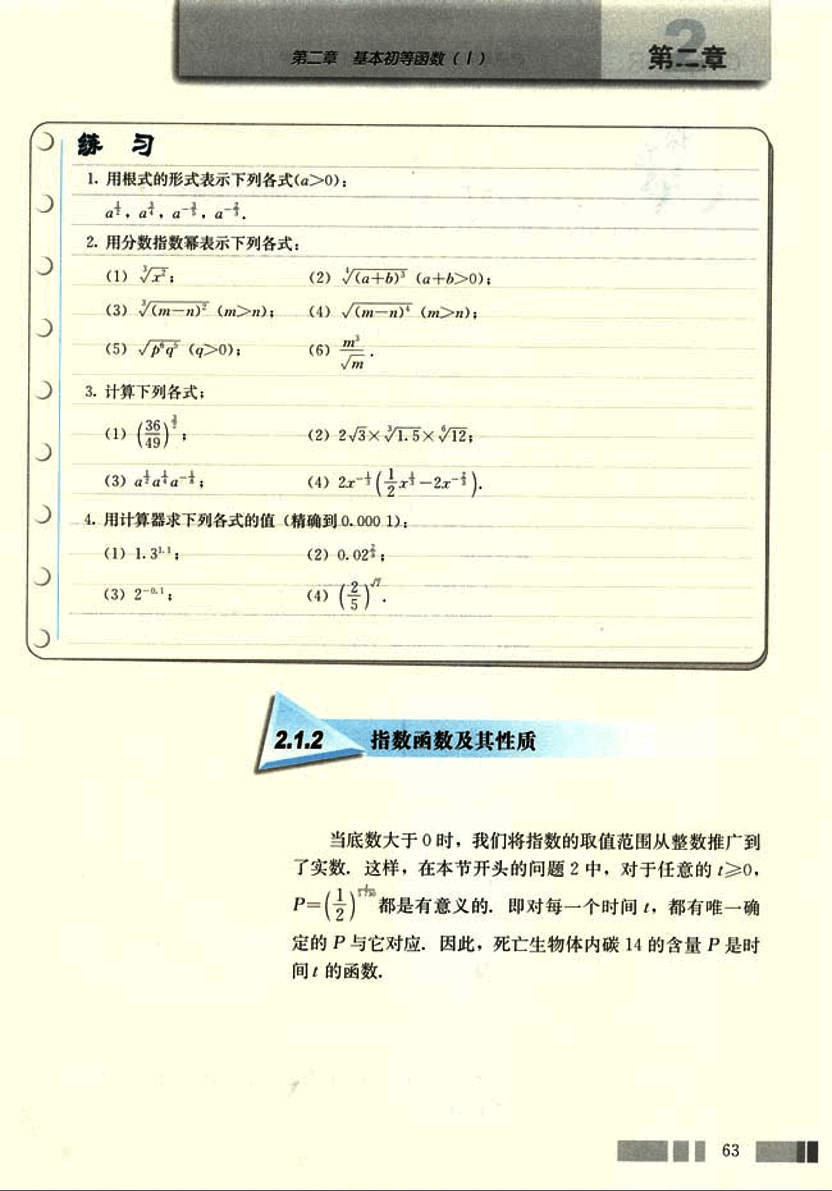 第二章 基本初等函数(Ⅰ)
第二章
练 习
1. 用根式的形式表示下列各式(a>0):
a^{1/2}, a^{3/4}, a^{-3/5}, a^{-2/3}.
2. 用分数指数幂表示下列各式:
(1) ∛(x²); (2) ∜((a+b)³) (a+b>0);
(3) ∛((m-n)²) (m>n); (4) √((m-n)⁴) (m>n);
(5) √(p⁶q⁵) (q>0); (6) m³/√m.
3. 计算下列各式:
(1) (36/49)^{3/2}; (2) 2√3×∛1.5×⁶√12;
(3) a^{1/2}a^{1/4}a^{-1/8}; (4) 2x^{-1/3}(1/2 x^{1/3}-2x^{-2/3}).
4. 用计算器求下列各式的值(精确到0.000 1):
(1) 1.3^{1.1}; (2) 0.02^{2/3};
(3) 2^{-0.1}; (4) (2/5)^{√7}.
2.1.2 指数函数及其性质
当底数大于0时,我们将指数的取值范围从整数推广到
了实数. 这样,在本节开头的问题2中,对于任意的t≥0,
P=(1/2)^{t/5730}都是有意义的. 即对每一个时间t,都有唯一确
定的P与它对应. 因此,死亡生物体内碳14的含量P是时
间t的函数.
63